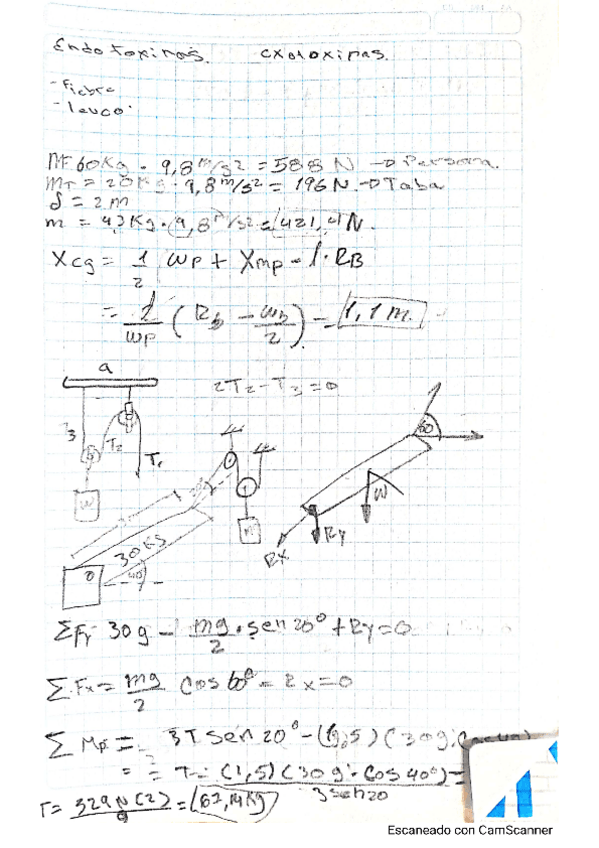 Endotoxinas. exotoxinas.
- Fiebre
- leuco.
M= 60Kg - 9,8 m/s2 = 588 N → Persona.
mT = 20Kg . 9,8 m/s2 = 196 N. → Tabla
d = 2m
m = 43 Kg . 9,8 m/s2 = 421,4 N.
Xcg = 1/2 wp + Xmp = l . RB
= l/wp (Rb - wb/2) = 1,1 m.
a
2T2 - T3 = 0
T2
T1
w
60
W
Ry
Rx
30 Kg
40°
0
ΣFy 30g - mg/2 . sen 20° + Ry = 0
Σ Fx = mg/2 cos 60° - Rx = 0
Σ Mo = 3T sen 20° - (1,5) (30g .
= T = (1,5) (30g . cos 40°) = / 3 sen 20
T = 329 N (2) / g = 67,14 Kg
Escaneado con CamScanner